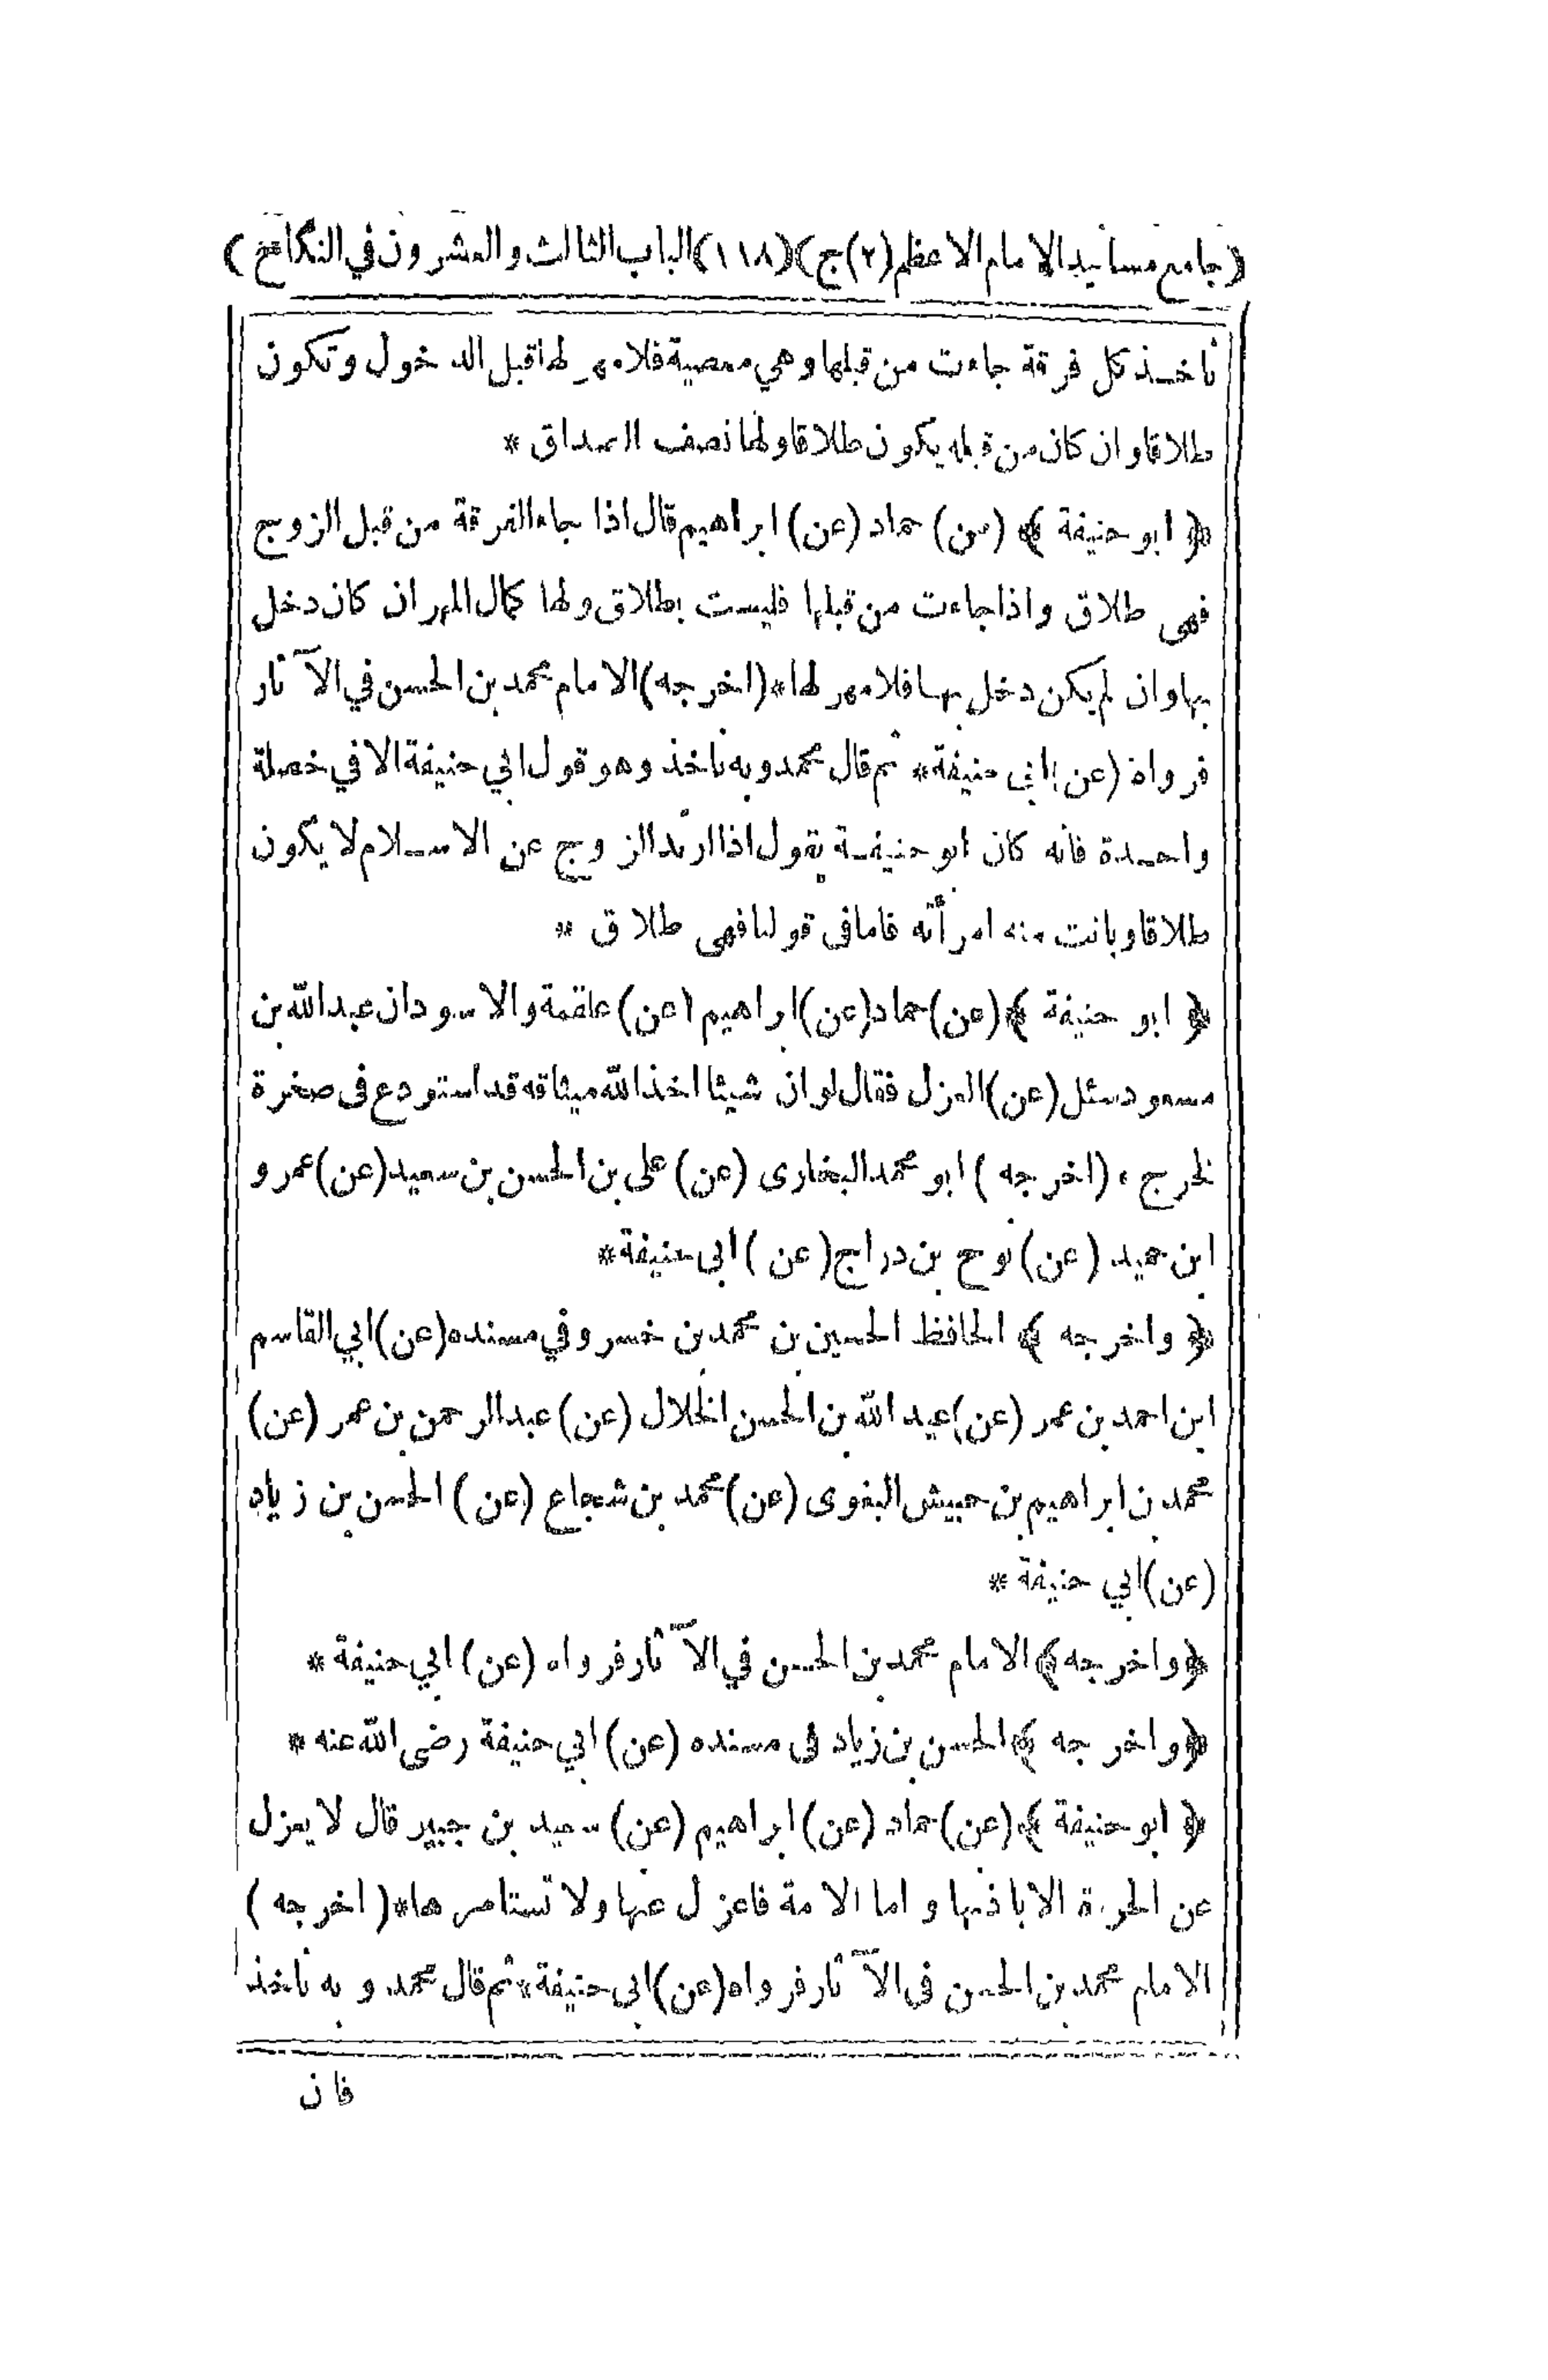 (جامع مسانيد الامام الاعظم (٢) ج) (١١٨) (الباب الثالث والعشرون في النكاح)
نأخذ كل فرقة جاءت من قبلها وهي معصية فلا مهر لها قبل الدخول وتكون
طلاقا وان كان من قبله يكون طلاقا ولها نصف الصداق *
﴿ ابو حنيفة ﴾ (عن) حماد (عن) ابراهيم قال اذا جاء الفرقة من قبل الزوج
فهى طلاق واذا جاءت من قبلها فليست بطلاق ولها كمال المهر ان كان دخل
بها وان لم يكن دخل بها فلا مهر لها * (اخرجه) الامام محمد بن الحسن في الآثار
فرواه (عن) ابي حنيفة * ثم قال محمد وبه نأخذ وهو قول ابي حنيفة الا في خصلة
واحدة فانه كان ابو حنيفة يقول اذا ارتد الزوج عن الاسلام لا يكون
طلاقا وبانت منه امرأته فاما فى قولنا فهى طلاق *
﴿ ابو حنيفة ﴾ (عن) حماد (عن) ابراهيم (عن) علقمة والاسود ان عبد الله بن
مسعود سئل (عن) العزل فقال لو ان شيئا اخذ الله ميثاقه قد استودع فى صخرة
لخرج * (اخرجه) ابو محمد البخارى (عن) على بن الحسن بن سعيد (عن) عمرو
ابن حميد (عن) نوح بن دراج (عن) ابى حنيفة *
﴿ واخرجه ﴾ الحافظ الحسين بن محمد بن خسرو في مسنده (عن) ابي القاسم
ابن احمد بن عمر (عن) عبد الله بن الحسن الخلال (عن) عبد الرحمن بن عمر (عن)
محمد بن ابراهيم بن حبيش البغوى (عن) محمد بن شجاع (عن) الحسن بن زياد
(عن) ابي حنيفة *
﴿ واخرجه ﴾ الامام محمد بن الحسن في الآثار فرواه (عن) ابي حنيفة *
﴿ واخرجه ﴾ الحسن بن زياد فى مسنده (عن) ابي حنيفة رضى الله عنه *
﴿ ابو حنيفة ﴾ (عن) حماد (عن) ابراهيم (عن) سعيد بن جبير قال لا يعزل
عن الحرة الا باذنها و اما الامة فاعزل عنها ولا تستامرها * (اخرجه)
الامام محمد بن الحسن فى الآثار فرواه (عن) ابى حنيفة * ثم قال محمد و به نأخذ
فان